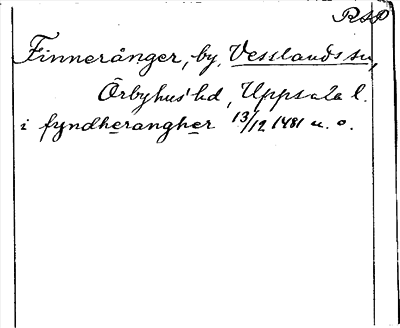 RAP
Finnerånger, by, Vesslands sn,
Örbyhus hd, Uppsala l.
i fyndherangher 13/12 1481 u. o.